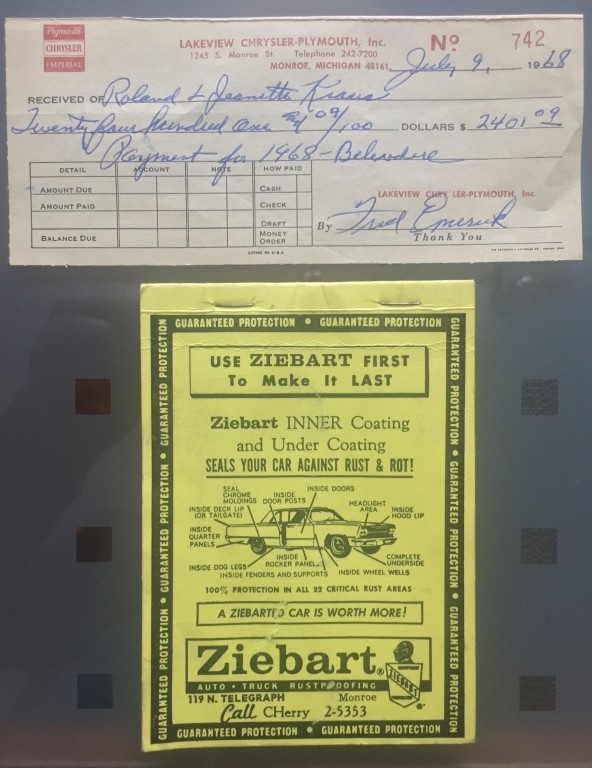 Plymouth
CHRYSLER
IMPERIAL
LAKEVIEW CHRYSLER-PLYMOUTH, Inc.
1245 S. Monroe St. Telephone 242-7200
MONROE, MICHIGAN 48161,
Nº 742
July 9, 1968
RECEIVED OF Roland & Jeanette Kraus
Twenty four hundred one & 09/100 DOLLARS $ 2401 09
Payment for 1968 - Belvedere
DETAIL ACCOUNT NOTE HOW PAID
AMOUNT DUE CASH
AMOUNT PAID CHECK
DRAFT
BALANCE DUE MONEY ORDER
LITHO IN U.S.A.
LAKEVIEW CHRY LER-PLYMOUTH, Inc.
By Fred Emerick
Thank You
GUARANTEED PROTECTION • GUARANTEED PROTECTION
GUARANTEED PROTECTION • GUARANTEED PROTECTION • GUARANTEED PROTECTION
USE ZIEBART FIRST
To Make It LAST
Ziebart INNER Coating
and Under Coating
SEALS YOUR CAR AGAINST RUST & ROT!
SEAL CHROME MOLDINGS
INSIDE DOOR POSTS
INSIDE DOORS
INSIDE DECK LIP (OR TAILGATE)
HEADLIGHT AREA
INSIDE HOOD LIP
INSIDE QUARTER PANELS
INSIDE DOG LEGS
INSIDE ROCKER PANELS
COMPLETE UNDERSIDE
INSIDE FENDERS AND SUPPORTS
INSIDE WHEEL WELLS
100% PROTECTION IN ALL 22 CRITICAL RUST AREAS
A ZIEBARTED CAR IS WORTH MORE!
Ziebart®
AUTO • TRUCK RUSTPROOFING
ZIEBART
119 N. TELEGRAPH Monroe
Call CHerry 2-5353
GUARANTEED PROTECTION • GUARANTEED PROTECTION • GUARANTEED PROTECTION
GUARANTEED PROTECTION • GUARANTEED PROTECTION